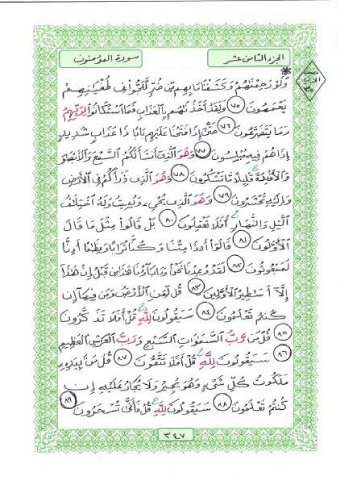 الجزء الثامن عشر
سورة المؤمنون
وَلَوْ رَحِمْنَاهُمْ وَكَشَفْنَا مَا بِهِم مِّن ضُرٍّ لَّلَجُّوا فِي طُغْيَانِهِمْ
يَعْمَهُونَ ٧٥ وَلَقَدْ أَخَذْنَاهُم بِالْعَذَابِ فَمَا اسْتَكَانُوا لِرَبِّهِمْ
وَمَا يَتَضَرَّعُونَ ٧٦ حَتَّىٰ إِذَا فَتَحْنَا عَلَيْهِم بَابًا ذَا عَذَابٍ شَدِيدٍ
إِذَا هُمْ فِيهِ مُبْلِسُونَ ٧٧ وَهُوَ الَّذِي أَنشَأَ لَكُمُ السَّمْعَ وَالْأَبْصَارَ
وَالْأَفْئِدَةَ قَلِيلًا مَّا تَشْكُرُونَ ٧٨ وَهُوَ الَّذِي ذَرَأَكُمْ فِي الْأَرْضِ
وَإِلَيْهِ تُحْشَرُونَ ٧٩ وَهُوَ الَّذِي يُحْيِي وَيُمِيتُ وَلَهُ اخْتِلَافُ
اللَّيْلِ وَالنَّهَارِ أَفَلَا تَعْقِلُونَ ٨٠ بَلْ قَالُوا مِثْلَ مَا قَالَ
الْأَوَّلُونَ ٨١ قَالُوا أَإِذَا مِتْنَا وَكُنَّا تُرَابًا وَعِظَامًا أَإِنَّا
لَمَبْعُوثُونَ ٨٢ لَقَدْ وُعِدْنَا نَحْنُ وَآبَاؤُنَا هَٰذَا مِن قَبْلُ إِنْ هَٰذَا
إِلَّا أَسَاطِيرُ الْأَوَّلِينَ ٨٣ قُل لِّمَنِ الْأَرْضُ وَمَن فِيهَا إِن
كُنتُمْ تَعْلَمُونَ ٨٤ سَيَقُولُونَ لِلَّهِ قُلْ أَفَلَا تَذَكَّرُونَ
٨٥ قُلْ مَن رَّبُّ السَّمَاوَاتِ السَّبْعِ وَرَبُّ الْعَرْشِ الْعَظِيمِ
٨٦ سَيَقُولُونَ لِلَّهِ قُلْ أَفَلَا تَتَّقُونَ ٨٧ قُلْ مَن بِيَدِهِ
مَلَكُوتُ كُلِّ شَيْءٍ وَهُوَ يُجِيرُ وَلَا يُجَارُ عَلَيْهِ إِن
كُنتُمْ تَعْلَمُونَ ٨٨ سَيَقُولُونَ لِلَّهِ قُلْ فَأَنَّىٰ تُسْحَرُونَ ٨٩
٣٤٧